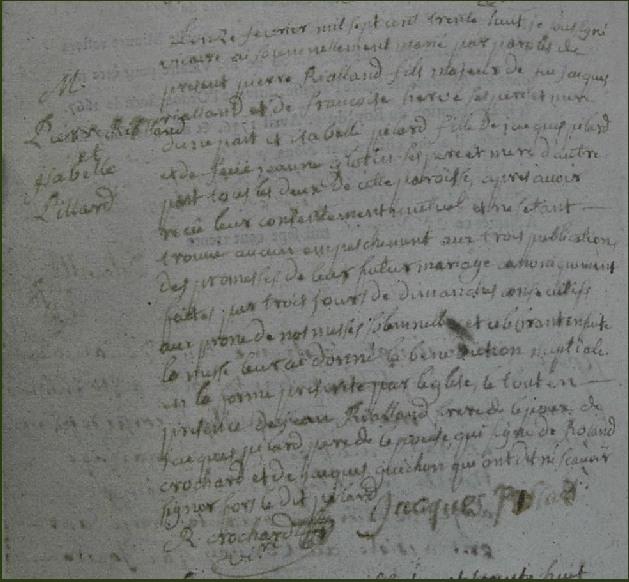 M.
Pierre Rialland
et
isabelle
Pillard
L'onze fevrier mil sept cent trente huit je soussigné
vicaire ai solennellement marié par paroles de
present pierre Rialland fils majeur de feu jacques
rialland et de francoise hervé ses pere et mere
d'une part et isabelle pelard fille de jacques pelard
et de feue jeanne ses pere et mere d'autre
part tous les deux de cette paroisse, apres avoir
receu leur consentement mutuel et ne s'etant
trouvé aucun empeschement aux trois publications
des promesses de leur futur mariage canoniquement
faittes par trois jours de dimanches consecutifs
aux prone de nos messes solennelles et celebrant ensuite
la messe leur ai donné la benediction nuptiale
en la forme prescrite par l'eglise, le tout en
presence de jean Rialland frere de l'epoux, de
jacques pelard pere de l'epouse, qui signe de Roland
crochard et de jacques guechon qui ont dit ne scavoir
signer fors le dit pelard
Jacques Pilard
R crochard
vic.